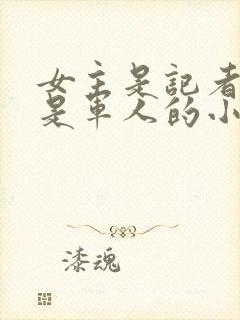 女主是記者
是軍人的小
漆魂